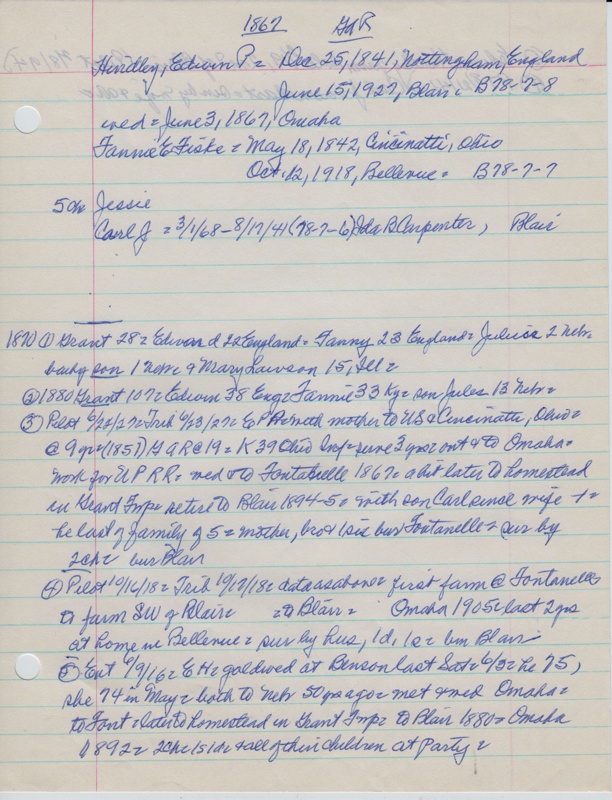 1867 GAR
Hindley, Edwin P. = Dec 25, 1841, Nottingham, England
June 15, 1927, Blair = B78-7-8
wed = June 3, 1867, Omaha
Fannie E. Fiske = May 18, 1842, Cincinatti, Ohio
Oct. 12, 1918, Bellevue = B78-7-7
5 ch Jessie
Carl J = 3/1/68 - 8/17/41 (78-7-6) Ida B Carpenter, Blair
1870 ① Grant 28 = Edward 22 England = Fanny 23 England = Julius 2 Nebr.
baby son 1 Nebr & Mary Lawson 15, Ill =
② 1880 Grant 107 = Edwin 38 Eng = Fannie 33 Ky = son Jules 13 Nebr =
③ Pilot 6/22/27 = Trib 6/23/27 = EPH with mother to US & Cincinatti, Ohio =
@ 9 yr = (1851) GAR @ 19 = K 39 Ohio Inf = 3 yrs = & to Omaha =
work for UPRR = wed & to Fontanelle 1867 = a bit later to homestead
in Grant Twp = retire to Blair 1894-5 = with son Carl since wife + =
he last of family of 5 = mother, bro & sis bur Fontanelle = sur by
2 ch = bur Blair
④ Pilot 10/16/18 = Trib 10/17/18 = data as above = first farm @ Fontanelle =
to farm SW of Blair = = to Blair = Omaha 1905 = last 2 yrs
at home in Bellevue = sur by hus, 1d, 1s = bur Blair =
⑤ Ent 6/9/16 = EH = gold wed at Benson last Sat = 6/3 = he 75,
she 74 in May = both to Nebr 50 yrs ago = met & wed Omaha =
to Font = later to homestead in Grant Twp = to Blair 1880 = Omaha
1892 = 2 ch = 1s 1d = & all of their children at party =